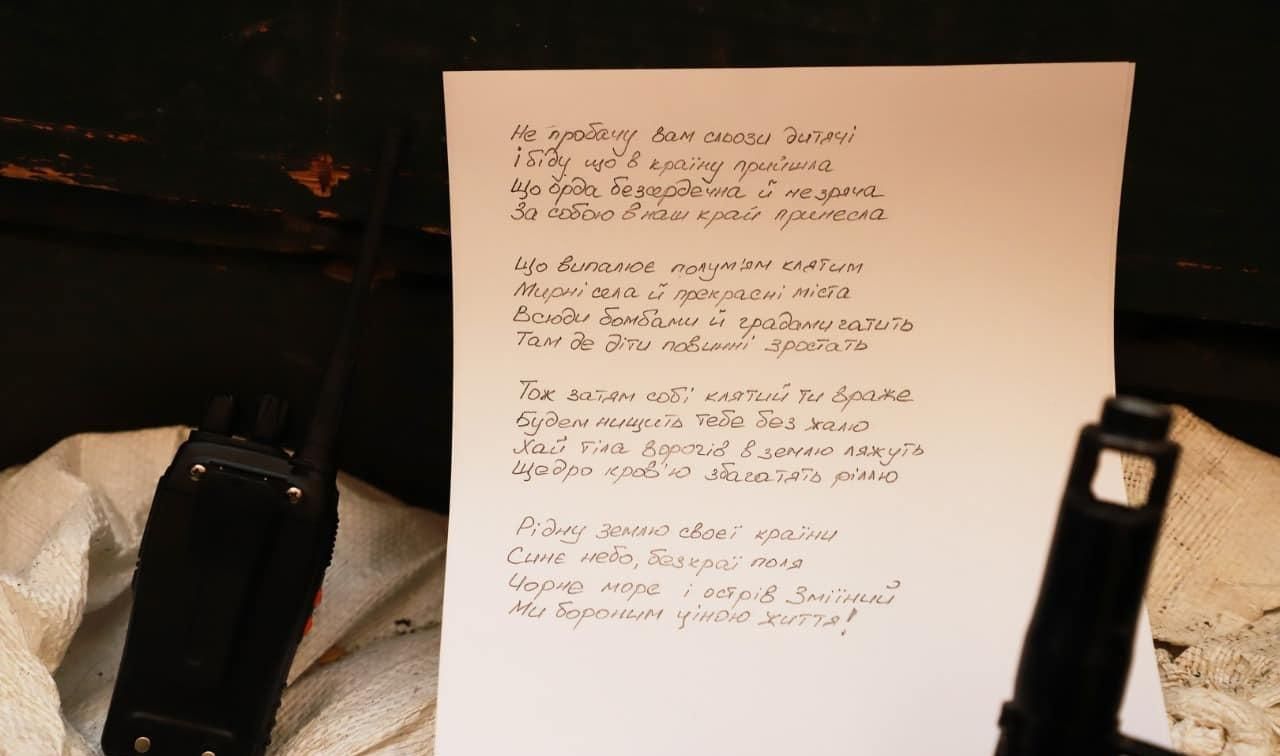 Не пробачу вам сльози дитячі
і біду що в країну прийшла
Що орда безсердечна й незряча
За собою в наш край принесла
Що випалює полум'ям клятим
Мирні села й прекрасні міста
Всюди бомбами й градами гатить
Там де діти повинні зростать
Тож затям собі клятий ти враже
Будем нищить тебе без жалю
Хай тіла ворогів в землю ляжуть
Щедро кров'ю збагатять ріллю
Рідну землю своєї країни
Синє небо, безкраї поля
Чорне море і острів Зміїний
Ми бороним ціною життя!